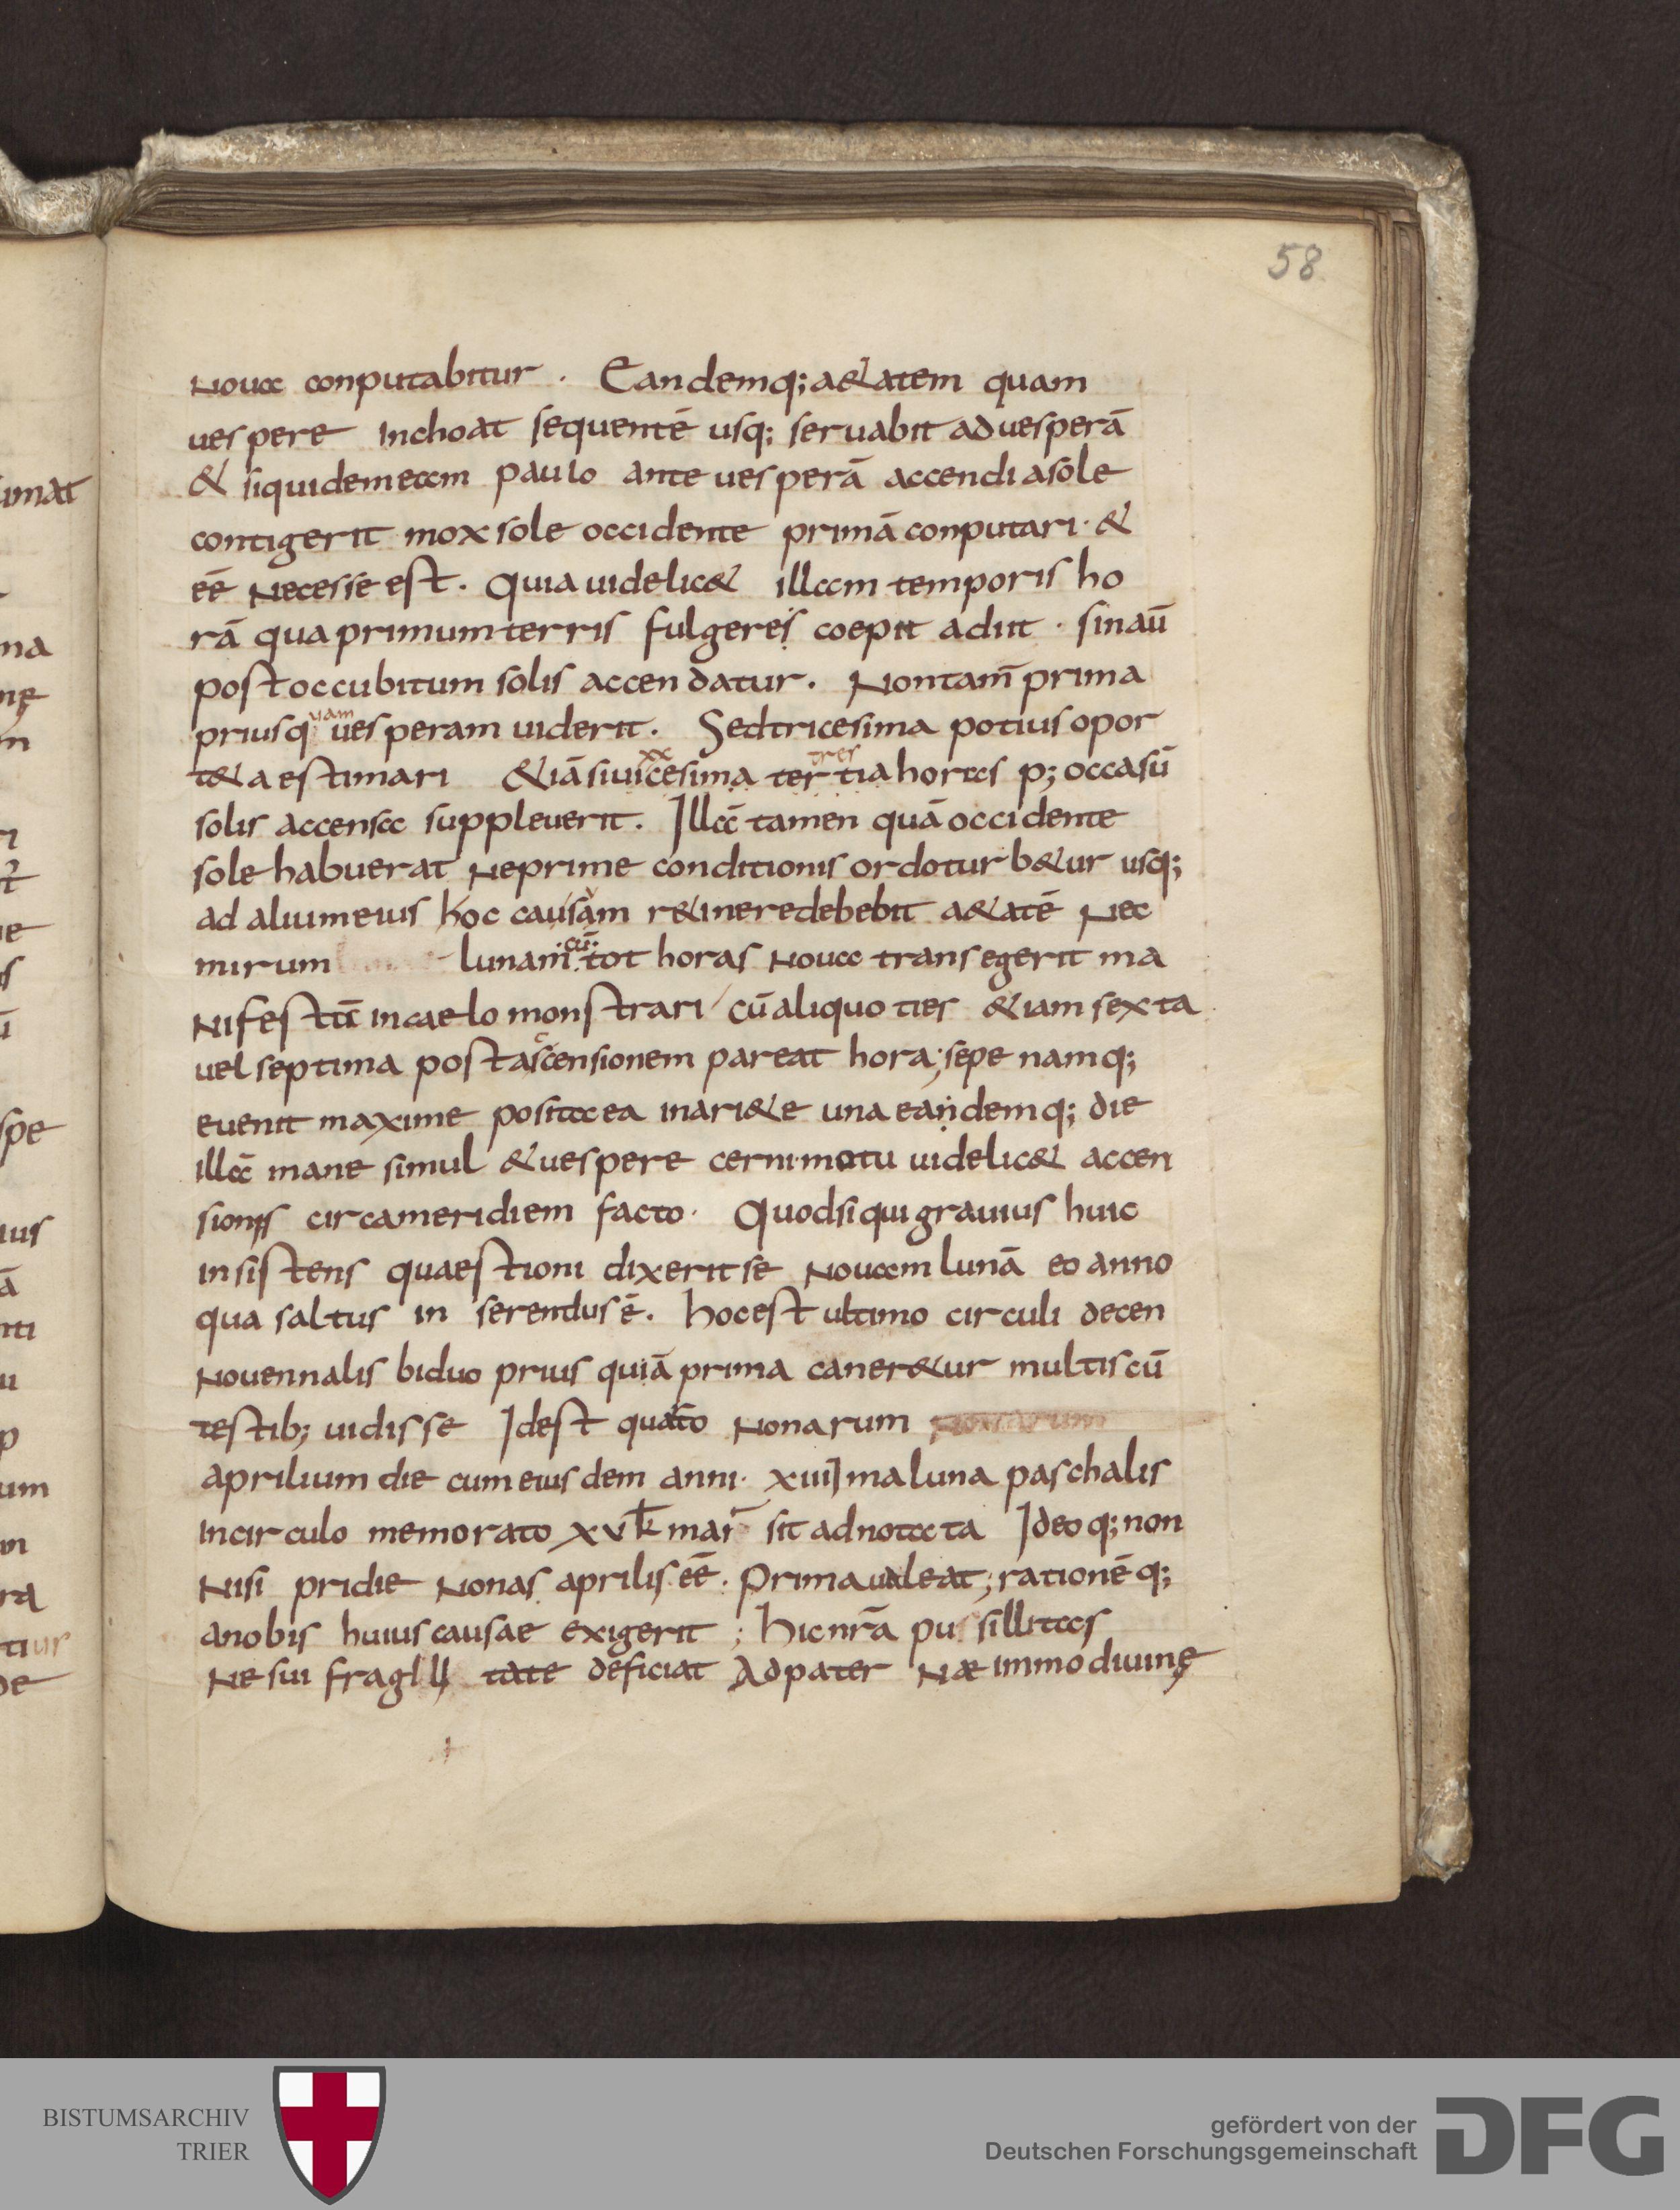 58
noua conputabitur . Eandemq; a&atem quam
uespere inchoat sequentē usq; seruabit ad uesperā
& siquidem eam paulo ante uesperā accendi a sole
contigerit mox sole occidente primā conputari · &
eē necesse est . Quia uidelic& illam temporis ho
rā qua primum terris fulgereś coepit adiit · sin aū
post occubitum solis accendatur . Non tam̄ prima
priusq uam uesperam uiderit . Sed tricesima potius opor
t& aestimari &iā si uicesima xx tertia tres horas p; occasū
solis accensa suppleuerit . Illā tamen quā occidente
sole habuerat ne prime conditionis ordo turb&ur usq;
ad aliumeius hoc causam r&inere debebit a&atē Nec
mirum lunam cū tot horas noua transegerit ma
nifestū in caelo monstrari cū aliquoties &iam sexta
uel septima post ascensionem pareat hora; sepe namq;
euenit maxime posita ea in ari&e una eandemq; die
illā mane simul & uespere cerni motu uidelic& accen
sionis circa meridiem facto · Quod si qui grauius huic
insistens quaestioni dixerit se nouam lunā eo anno
qua saltus in serendus ē . hoc est ultimo circuli decen
nouennalis biduo prius quiā prima caner&ur multis cū
testib; uidisse Idest quato nonarum nonarum
aprilium die cum eiusdem anni · xiiij ma luna paschalis
in circulo memorato xvk mai sit adnotata Ideoq; non
nisi pridie nonas aprilis eē . Prima ualeat; rationēq;
a nobis huius causae exigerit ; hic nrā pusillitas
ne sui fragili tate deficiat Ad pater næ immo diuinę
imat
na
nę
spe
ius
nti
um
ra
tiur
de
BISTUMSARCHIV
TRIER
gefördert von der
Deutschen Forschungsgemeinschaft
DFG